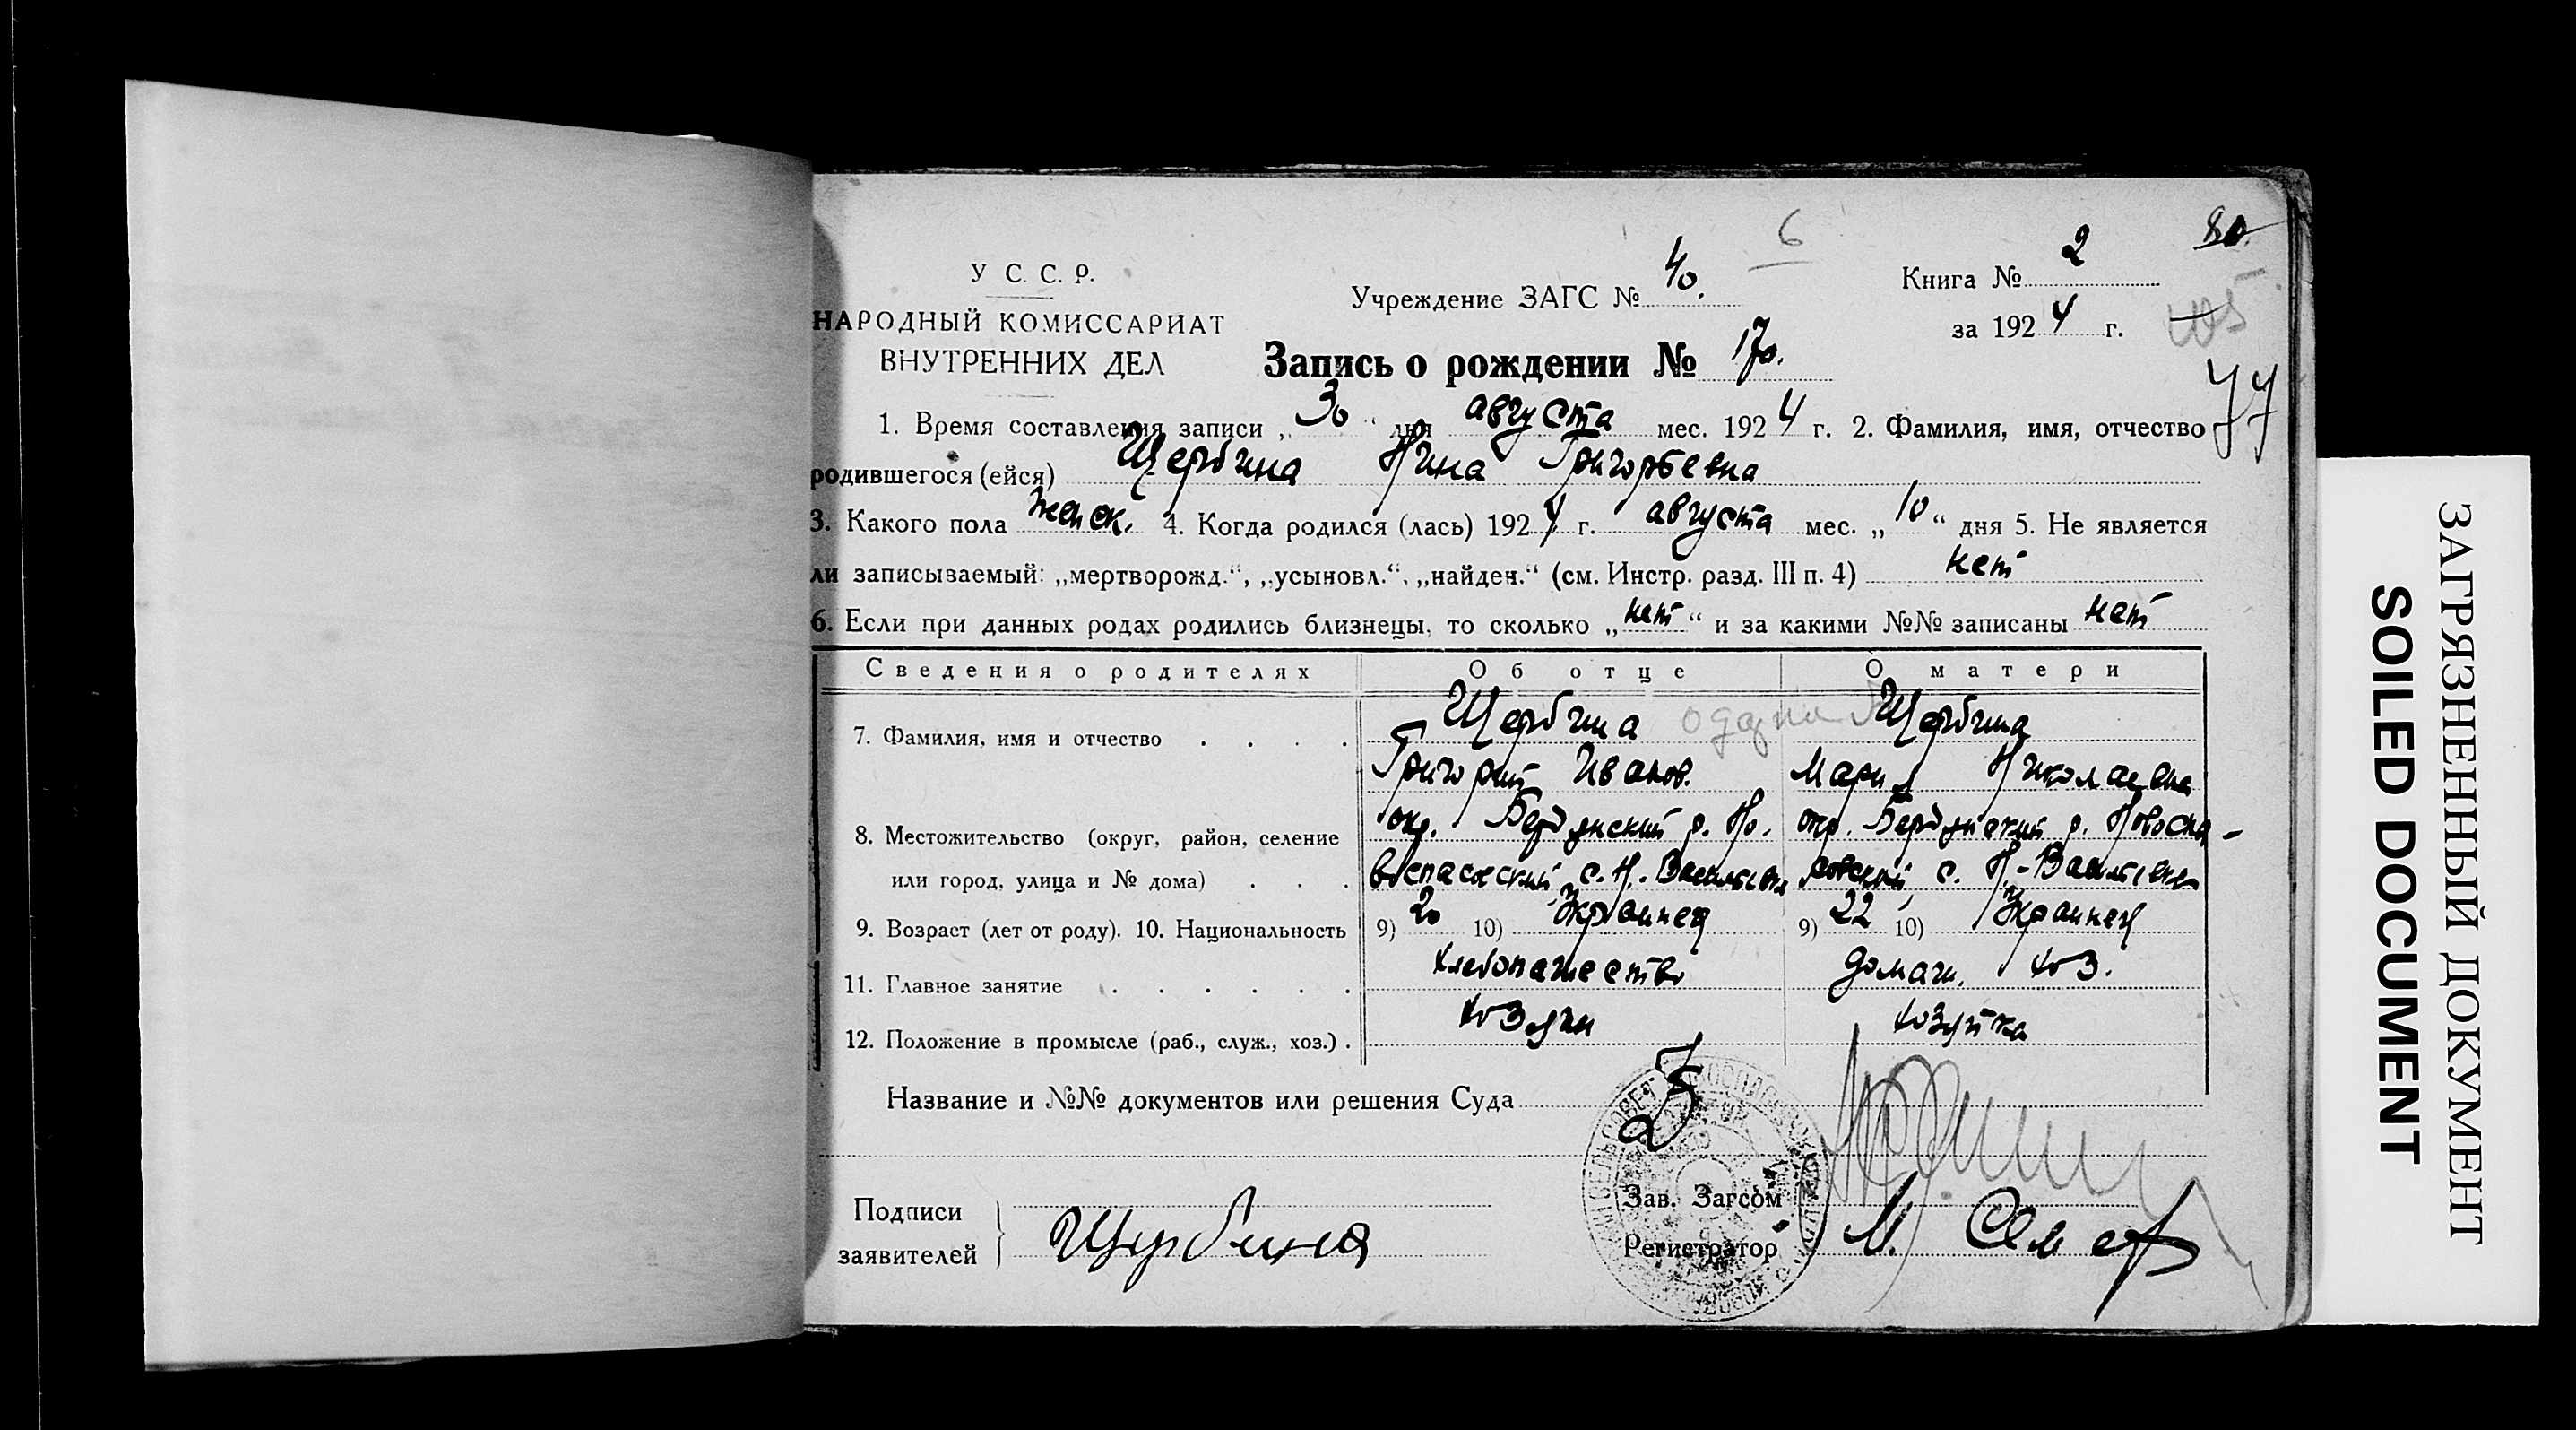 6
80.
У С. С. Р.
Учреждение ЗАГС № 40.
Книга № 2
НАРОДНЫЙ КОМИССАРИАТ
за 1924 г.
105
ВНУТРЕННИХ ДЕЛ
Запись о рождении № 170.
77
1. Время составления записи „ 30 “ дня августа мес. 1924 г. 2. Фамилия, имя, отчество
родившегося (ейся) Щербина Нина Григорьевна
3. Какого пола женск. 4. Когда родился (лась) 1924 г. августа мес. „ 10 “ дня 5. Не является
ли записываемый: „мертворожд.“, „усыновл.“, „найден.“ (см. Инстр. разд. III п. 4) нет
6. Если при данных родах родились близнецы, то сколько „ нет “ и за какими №№ записаны нет
Сведения о родителях Об отце О матери
7. Фамилия, имя и отчество . . . . Щербина Щербина
Григорий Иванов. Мария Николаевна
8. Местожительство (округ, район, селение окр. Бердянский р. Но- окр. Бердянский р. Новоспа-
или город, улица и № дома) . . . воспасский с. Н.-Васильевк совский с. Н-Васильевк
9. Возраст (лет от роду). 10. Национальность 9) 20 10) Украинец 9) 22 10) Украинец
11. Главное занятие . . . . . . хлебопашество домаш. хоз.
12. Положение в промысле (раб., служ., хоз.) . хозяин хозяйка
Название и №№ документов или решения Суда
Зав. Загсом
Подписи
заявителей Щербина
Регистратор
ЗАГРЯЗНЕННЫЙ ДОКУМЕНТ
SOILED DOCUMENT